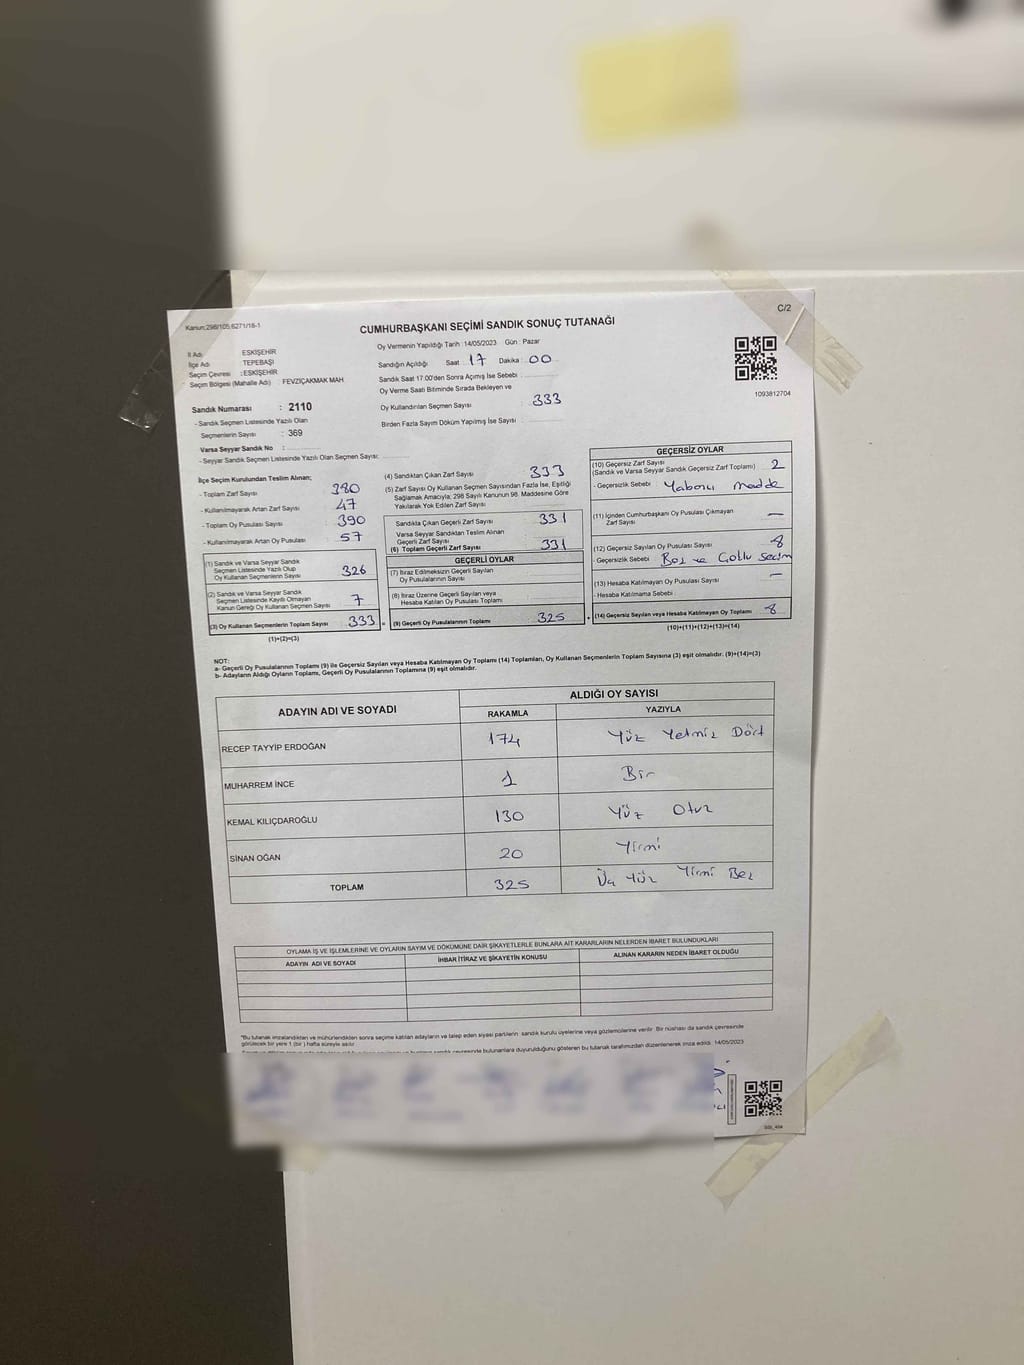 Kanun:298/105,6271/18-1
C/2
CUMHURBAŞKANI SEÇİMİ SANDIK SONUÇ TUTANAĞI
İl Adı : ESKİŞEHİR
İlçe Adı : TEPEBAŞI
Seçim Çevresi : ESKİŞEHİR
Seçim Bölgesi (Mahalle Adı) : FEVZİÇAKMAK MAH
Sandık Numarası : 2110
- Sandık Seçmen Listesinde Yazılı Olan
Seçmenlerin Sayısı : 369
Varsa Seyyar Sandık No :
- Seyyar Sandık Seçmen Listesinde Yazılı Olan Seçmen Sayısı:
Oy Vermenin Yapıldığı Tarih : 14/05/2023 Gün : Pazar
Sandığın Açıldığı Saat 17 Dakika 00
Sandık Saat 17:00'den Sonra Açımış İse Sebebi :
Oy Verme Saati Bitiminde Sırada Bekleyen ve
Oy Kullandırılan Seçmen Sayısı : 333
Birden Fazla Sayım Döküm Yapılmış İse Sayısı :
1093812704
İlçe Seçim Kurulundan Teslim Alınan;
- Toplam Zarf Sayısı : 380
- Kullanılmayarak Artan Zarf Sayısı : 47
- Toplam Oy Pusulası Sayısı : 390
- Kullanılmayarak Artan Oy Pusulası : 57
(1) Sandık ve Varsa Seyyar Sandık
Seçmen Listesinde Yazılı Olup
Oy Kullanan Seçmenlerin Sayısı 326
(2) Sandık ve Varsa Seyyar Sandık
Seçmen Listesinde Kayıtlı Olmayan
Kanun Gereği Oy Kullanan Seçmen Sayısı 7
(3) Oy Kullanan Seçmenlerin Toplam Sayısı 333
(1)+(2)=(3)
(4) Sandıktan Çıkan Zarf Sayısı : 333
(5) Zarf Sayısı Oy Kullanan Seçmen Sayısından Fazla İse, Eşitliği
Sağlamak Amacıyla; 298 Sayılı Kanunun 98. Maddesine Göre
Yakılarak Yok Edilen Zarf Sayısı :
Sandıkta Çıkan Geçerli Zarf Sayısı : 331
Varsa Seyyar Sandıktan Teslim Alınan
Geçerli Zarf Sayısı
(6) Toplam Geçerli Zarf Sayısı : 331
GEÇERLİ OYLAR
(7) İtiraz Edilmeksizin Geçerli Sayılan
Oy Pusulalarının Sayısı
(8) İtiraz Üzerine Geçerli Sayılan veya
Hesaba Katılan Oy Pusulası Toplamı
(9) Geçerli Oy Pusulalarının Toplamı 325
GEÇERSİZ OYLAR
(10) Geçersiz Zarf Sayısı
(Sandık ve Varsa Seyyar Sandık Geçersiz Zarf Toplamı) 2
- Geçersizlik Sebebi : Yabancı madde
(11) İçinden Cumhurbaşkanı Oy Pusulası Çıkmayan
Zarf Sayısı : —
(12) Geçersiz Sayılan Oy Pusulası Sayısı : 8
- Geçersizlik Sebebi : Boş ve Çoklu Seçim
(13) Hesaba Katılmayan Oy Pusulası Sayısı : —
- Hesaba Katılmama Sebebi :
(14) Geçersiz Sayılan veya Hesaba Katılmayan Oy Toplamı : 8
(10)+(11)+(12)+(13)=(14)
NOT:
a- Geçerli Oy Pusulalarının Toplamı (9) ile Geçersiz Sayılan veya Hesaba Katılmayan Oy Toplamı (14) Toplamları, Oy Kullanan Seçmenlerin Toplam Sayısına (3) eşit olmalıdır. (9)+(14)=(3)
b- Adayların Aldığı Oyların Toplamı, Geçerli Oy Pusulalarının Toplamına (9) eşit olmalıdır.
ADAYIN ADI VE SOYADI
ALDIĞI OY SAYISI
RAKAMLA YAZIYLA
RECEP TAYYİP ERDOĞAN 174 Yüz Yetmiş Dört
MUHARREM İNCE 1 Bir
KEMAL KILIÇDAROĞLU 130 Yüz Otuz
SİNAN OĞAN 20 Yirmi
TOPLAM 325 Üç Yüz Yirmi Beş
OYLAMA İŞ VE İŞLEMLERİNE VE OYLARIN SAYIM VE DÖKÜMÜNE DAİR ŞİKAYETLERLE BUNLARA AİT KARARLARIN NELERDEN İBARET BULUNDUKLARI
ADAYIN ADI VE SOYADI İHBAR İTİRAZ VE ŞİKAYETİN KONUSU ALINAN KARARIN NEDEN İBARET OLDUĞU
"Bu tutanak imzalandıktan ve mühürlendikten sonra seçime katılan adayların ve talep eden siyasi partilerin sandık kurulu üyelerine veya gözlemcilerine verilir. Bir nüshası da sandık çevresinde
görülecek bir yere 1 (bir) hafta süreyle asılır.
bulunanlara duyurulduğunu gösteren bu tutanak tarafımızdan düzenlenerek imza edildi. 14/05/2023